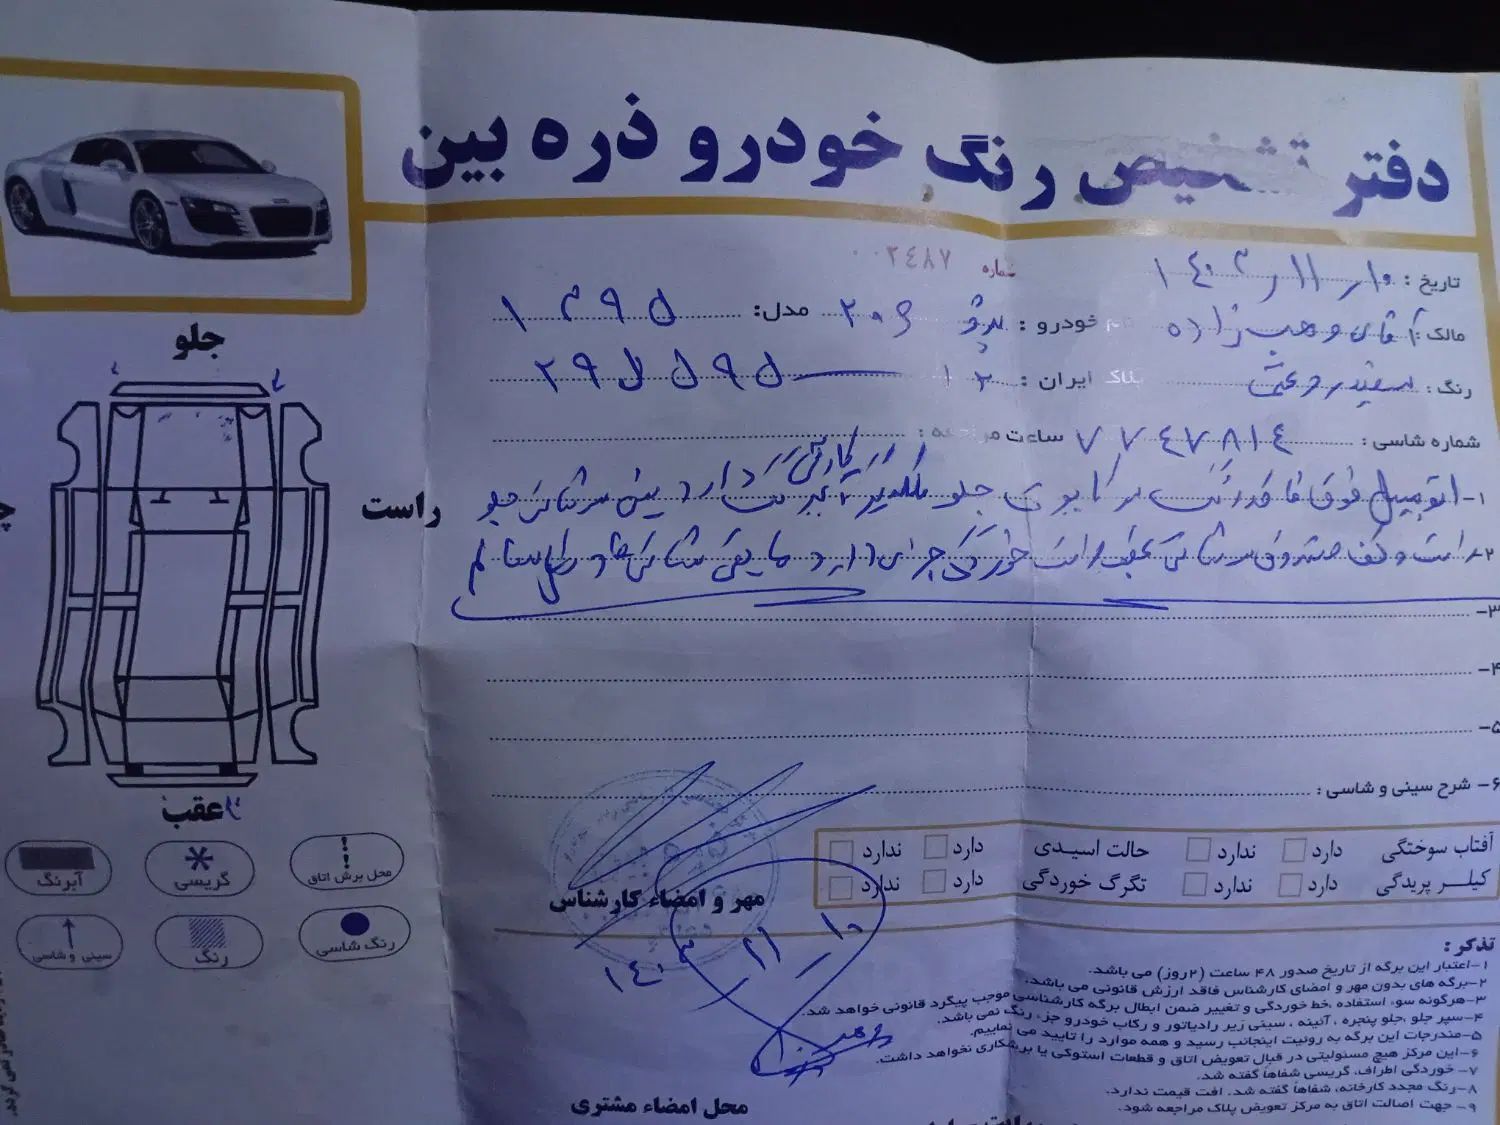 دفتر تشخیص رنگ خودرو ذره بین
شماره ۰۰۲۴۸۷
تاریخ : ۱۴۰۳/۱۱/۱۰
مالک : آقای وهب زاده نام خودرو : پژو ۲۰۶ مدل: ۱۳۹۵
رنگ : سفید روغنی پلاک ایران : ۲۹ل۵۹۵
شماره شاسی : ۷۷۴۷۸۱۴ ساعت مراجعه :
۱- اتومبیل فوق فاقد رنگ در کاپوت جلو گلگیر دارد سینی سرشاسی جلو
۲- راست و کف صندوق سرشاسی عقب راست خوردگی جزئی دارد مابقی شاسی ها سالم
۳-
۴-
۵-
۶- شرح سینی و شاسی :
جلو
راست
عقب
محل برش اتاق
گریسی
آبرنگ
رنگ شاسی
رنگ
سینی و شاسی
آفتاب سوختگی دارد ندارد حالت اسیدی دارد ندارد
کیلر پریدگی دارد ندارد تگرگ خوردگی دارد ندارد
مهر و امضاء کارشناس
محل امضاء مشتری
تذکر :
۱-اعتبار این برگه از تاریخ صدور ۴۸ ساعت (۲روز) می باشد.
۲-برگه های بدون مهر و امضای کارشناس فاقد ارزش قانونی می باشد.
۳-هرگونه سوء استفاده ،خط خوردگی و تغییر ضمن ابطال برگه کارشناسی موجب پیگرد قانونی خواهد شد.
۴-سپر جلو ،جلو پنجره ، آئینه ، سینی زیر رادیاتور و رکاب خودرو جزء رنگ نمی باشد.
۵-مندرجات این برگه به رویت اینجانب رسید و همه موارد را تایید می نماییم.
۶-این مرکز هیچ مسئولیتی در قبال تعویض اتاق و قطعات استوکی یا برشکاری نخواهد داشت.
۷- خوردگی اطراف، گریسی شفاهاً گفته شد.
۸-رنگ مجدد کارخانه، شفاهاً گفته شد. افت قیمت ندارد.
۹- جهت اصالت اتاق به مرکز تعویض پلاک مراجعه شود.